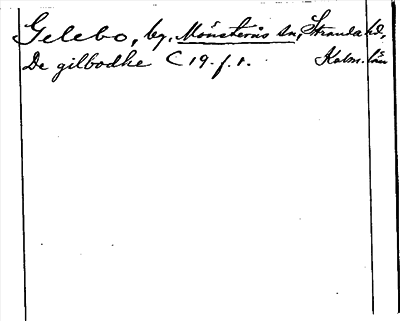 Gelebo, by, Mönsterås sn, Stranda hd,
De gilbodhe C 19. f. 1. Kalm. län